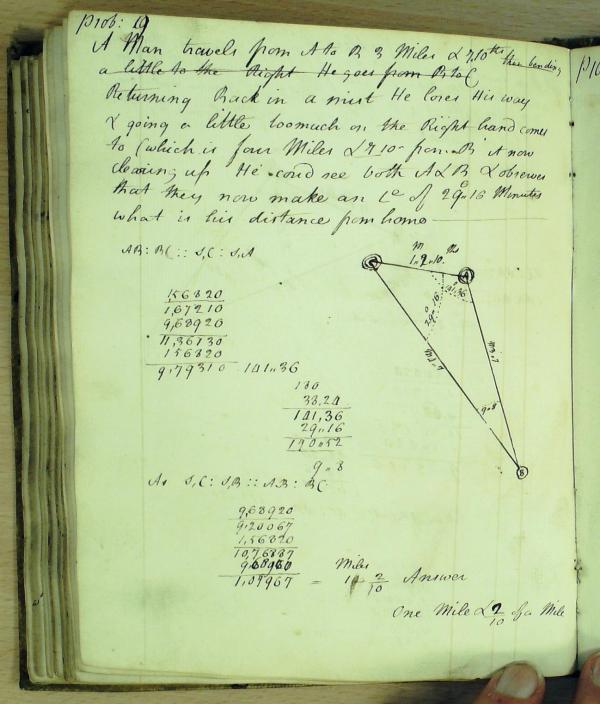 Prob: 19
A Man travels from A to B 3 Miles & 7,10ths then bending
a little to the Right He goes from B to C
Returning Back in a mist He loses His way
& going a little too much on the Right hand comes
to C which is four Miles & 7 10 from B it now
clearing up He could see both A & B & observes
that they now make an Le of 29°"16 Minutes
what is his distance from home
AB : BC :: S,C : S,A
1,56820
1,67210
9,68920
11,36130
1 56820
9,79310 141"36
180
38,24
141,36
29"16
170"52
9"8
As S,C : S,B :: AB : BC
9,68920
9,20067
1,56820
10,76887
9,68920
1,07967 = Miles 1 2/10 Answer
One Mile & 2/10 of a Mile
M ths
1"2"10
A
141,36
29°"16
9"8
B